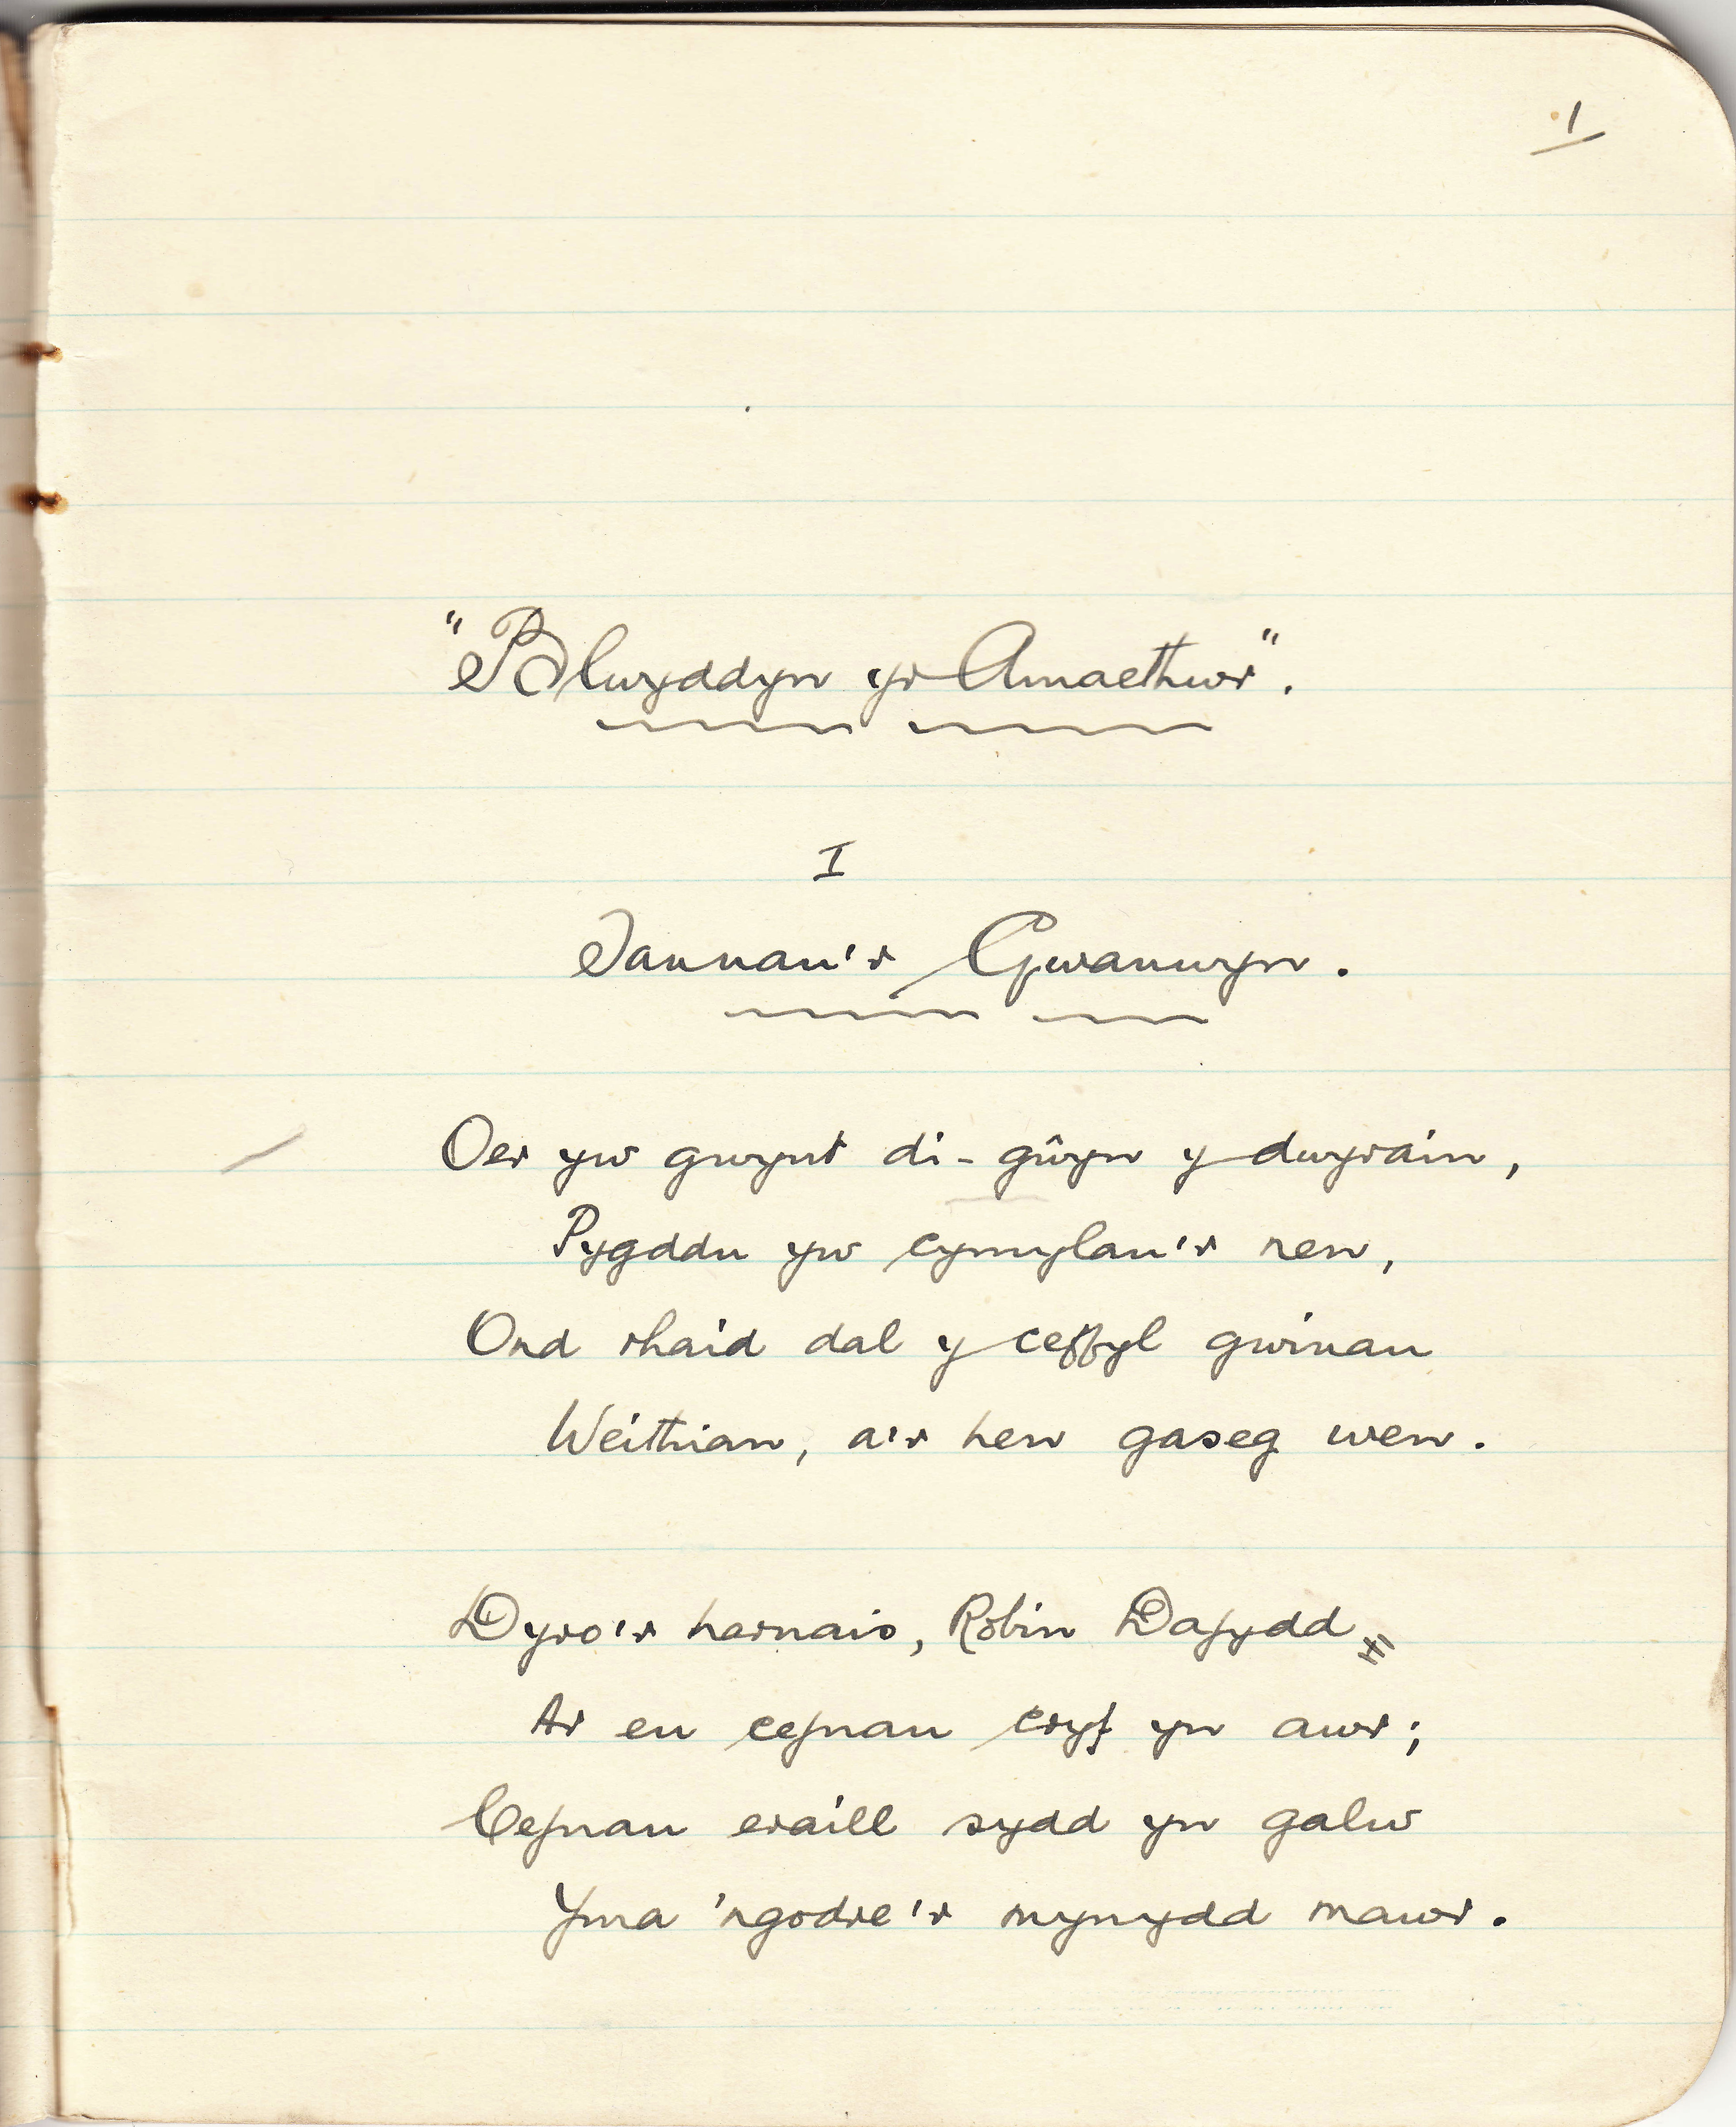 1
"Blwyddyn yr Amaethwr".
I
Tannau'r Gwanwyn.
Oer yw gwynt di-gŵyn y dwyrain,
Pygddu yw cymylau'r nen,
Ond rhaid dal y ceffyl gwinau
Weithian, a'r hen gaseg wen.
Dyro'r harnais, Robin Dafydd,
Ar eu cefnau cryf yn awr;
Cefnau eraill sydd yn galw
Yma 'ngodre'r mynydd mawr.